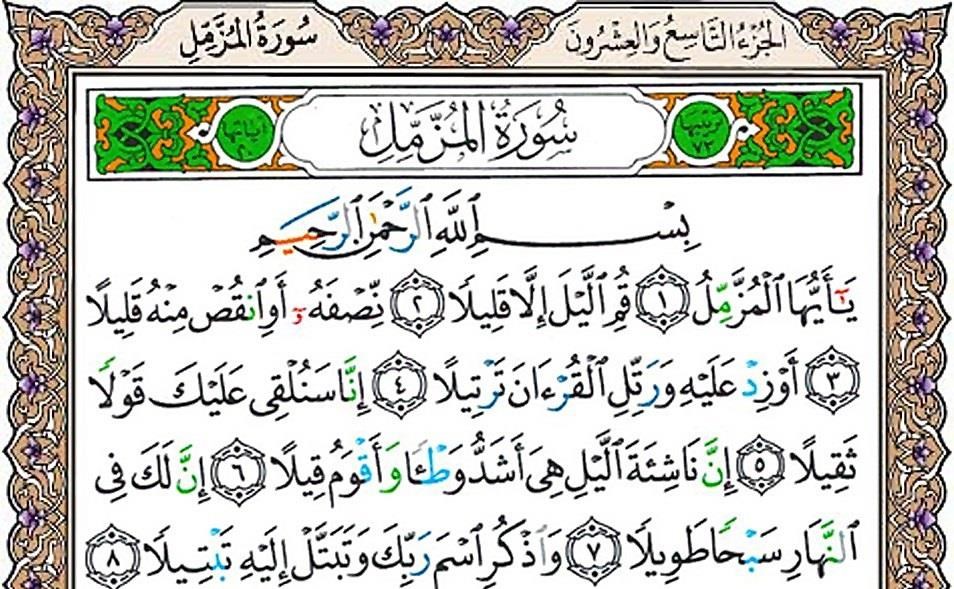 الجُزْءُ التَّاسِعُ وَالعِشْرُونَ سُورَةُ المُزَّمِّلِ
ترتيبها ٧٣ سُورَةُ المُزَّمِّلِ آياتها ٢٠
بِسْمِ ٱللَّهِ ٱلرَّحْمَٰنِ ٱلرَّحِيمِ
يَٰٓأَيُّهَا ٱلْمُزَّمِّلُ ١ قُمِ ٱلَّيْلَ إِلَّا قَلِيلًا ٢ نِّصْفَهُۥٓ أَوِ ٱنقُصْ مِنْهُ قَلِيلًا
٣ أَوْ زِدْ عَلَيْهِ وَرَتِّلِ ٱلْقُرْءَانَ تَرْتِيلًا ٤ إِنَّا سَنُلْقِى عَلَيْكَ قَوْلًا
ثَقِيلًا ٥ إِنَّ نَاشِئَةَ ٱلَّيْلِ هِىَ أَشَدُّ وَطْـًٔا وَأَقْوَمُ قِيلًا ٦ إِنَّ لَكَ فِى
ٱلنَّهَارِ سَبْحًا طَوِيلًا ٧ وَٱذْكُرِ ٱسْمَ رَبِّكَ وَتَبَتَّلْ إِلَيْهِ تَبْتِيلًا ٨